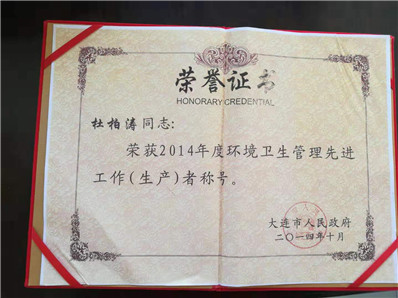 荣誉证书
HONORARY CREDENTIAL
杜柏涛同志:
荣获2014年度环境卫生管理先进
工作(生产)者称号。
大连市人民政府
二〇一四年十月